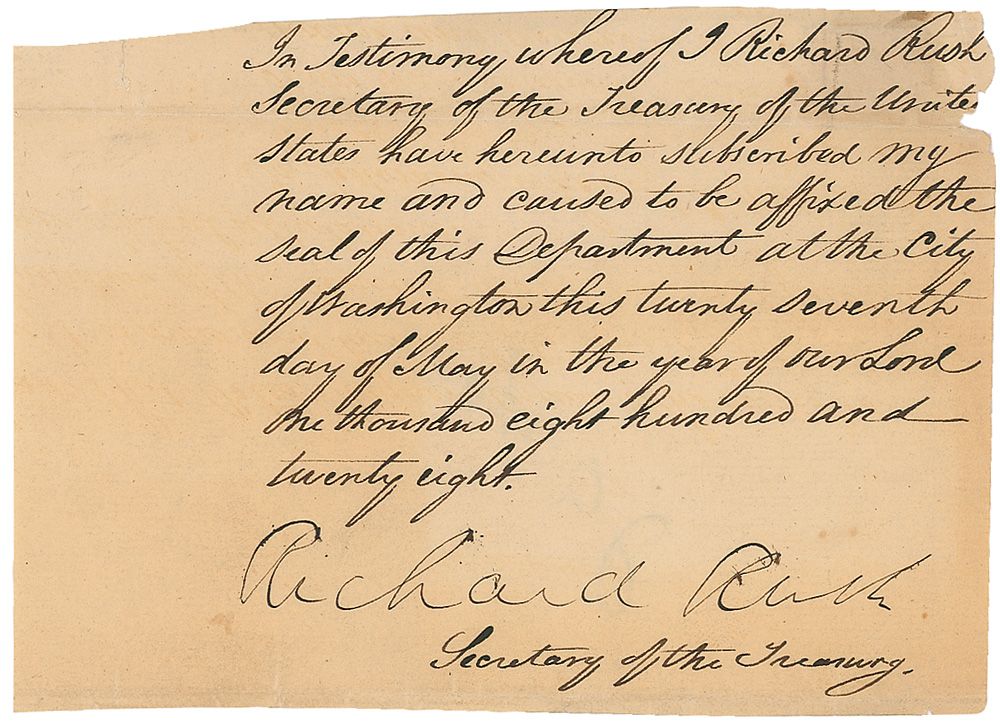 In Testimony whereof I Richard Rush
Secretary of the Treasury of the Unite
States have hereunto subscribed my
name and caused to be affixed the
seal of this Department at the City
of Washington this twenty seventh
day of May in the year of our Lord
One thousand eight hundred and
twenty eight.
Richard Rush
Secretary of the Treasury.